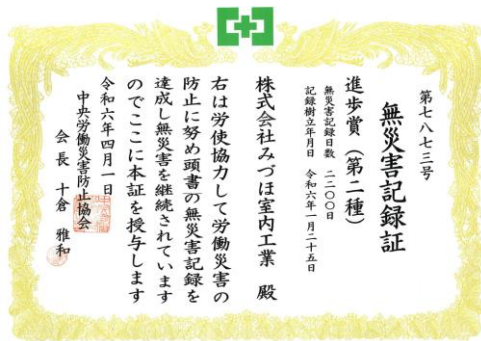 第七八七三号
無災害記録証
進歩賞（第二種）
無災害記録日数　二二〇〇日
記録樹立年月日　令和六年一月二十五日
株式会社みづほ室内工業　殿
右は労使協力して労働災害の
防止に努め頭書の無災害記録を
達成し無災害を継続されています
のでここに本証を授与します
令和六年四月一日
中央労働災害防止協会
会長　十倉　雅和